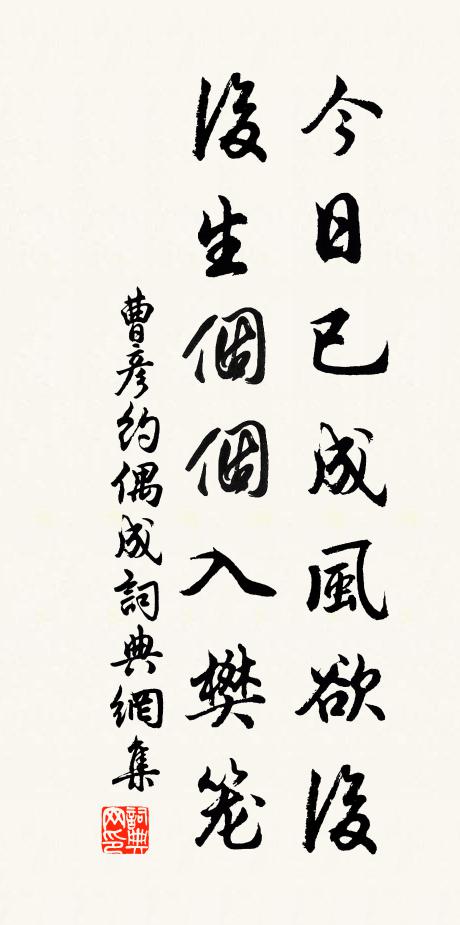 今日已成風欲後
後生個個入樊笼
曹彦約偶成詞典網集
詞典
网印